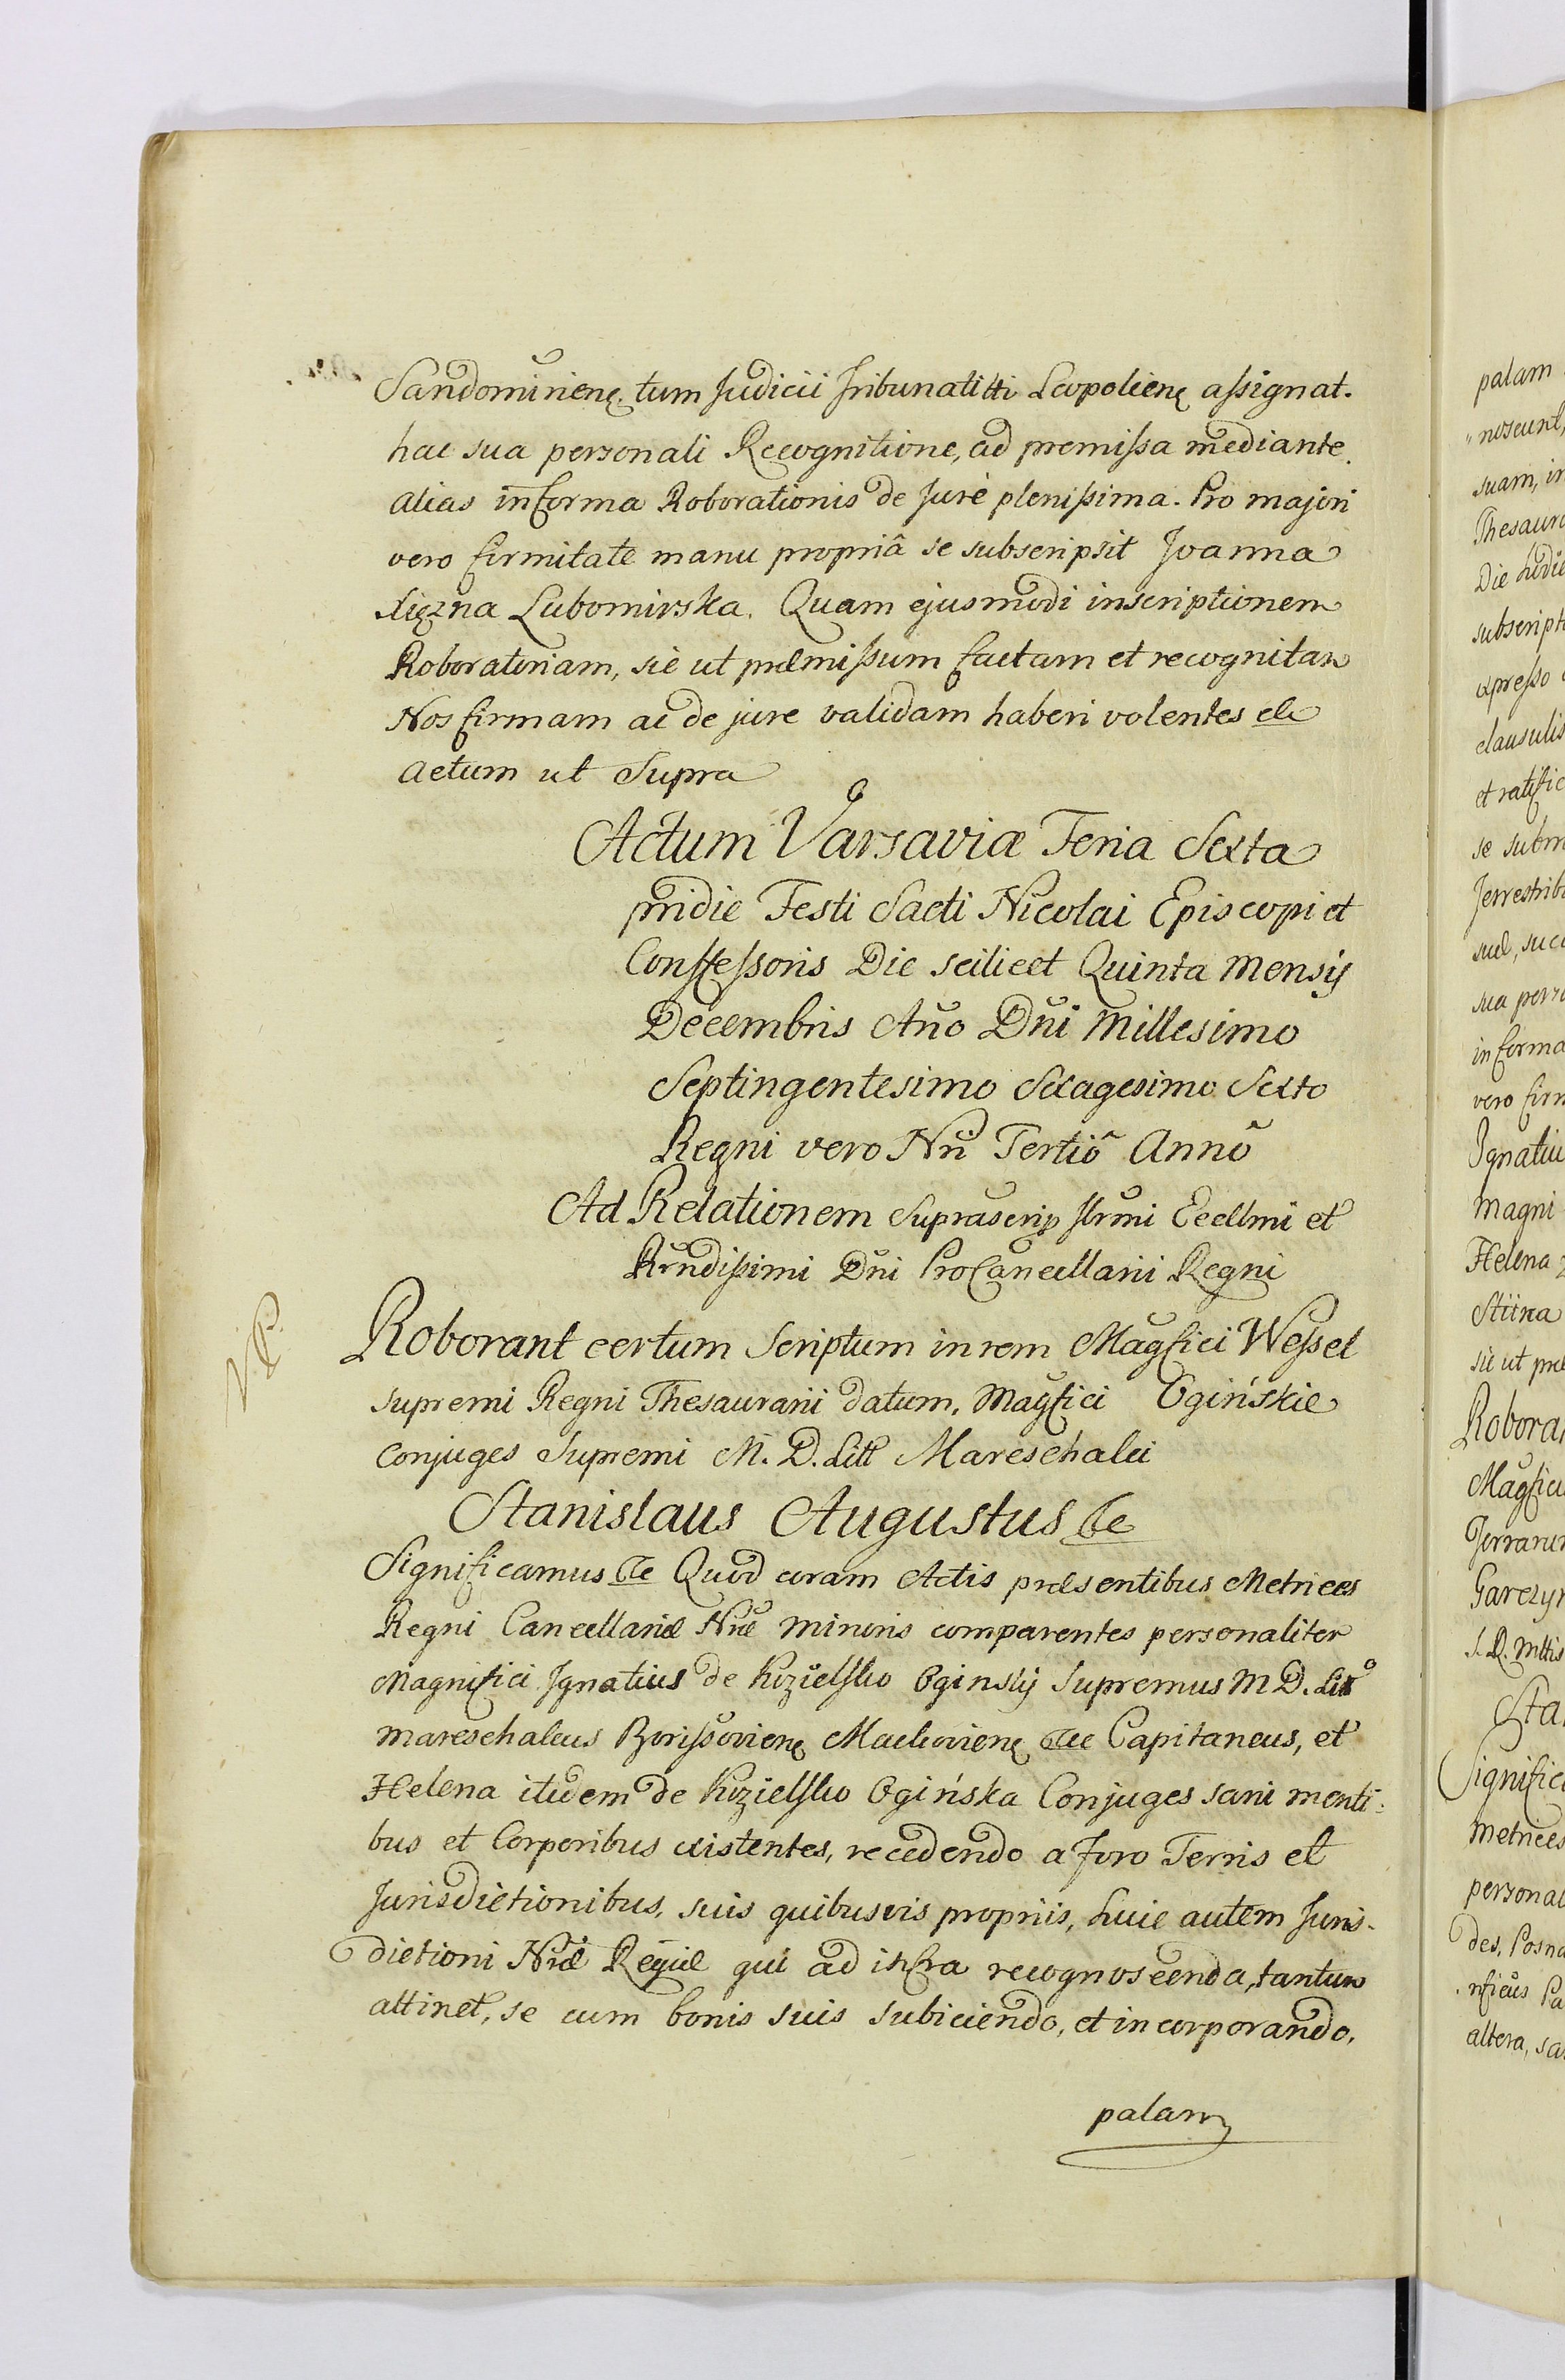 Sandomirienę. tum Judicii Tribunalitti Leopolienę assignat.
hac sua personali Recognitione, ad premissa mediante.
alias in forma Roborationis de Jure plenissima. Pro majori
vero firmitate manu propriâ se subscripsit Joanna
Xięzna Lubomirska. Quam ejusmodi inscriptionem
Roboratoriam, sic ut præmissum factam et recognitam
Nos firmam ac de jure validam haberi volentes etc
actum ut Supra
Actum Varsaviæ Feria Sexta
pridie Festi Sacti Nicolai Episcopi et
Conffessoris Die scilicet Quinta mensis
Decembris Año Dñi Millesimo
Septingentesimo Sexagesimo Sexto
Regni vero Nri Tertiô Annô
Ad Relationem Suprascrip Illrmi Ecellmi et
Rrndissimi Dñi ProCancellarii Regni
N. P.
Roborant certum Scriptum in rem Magfici Wessel
supremi Regni Thesaurarii datum, Magfici Ogińskie
Conjuges Supremi M. D. Litt Mareschalci
Stanislaus Augustus &c
Significamus &c Quod coram Actis præsentibus Metrices
Regni Cancellariæ Nræ minoris comparentes personaliter
Magnifici Ignatius de Kozielsko Oginskij Supremus M D. Litt
mareschalcus Borissovienę Macłovienę &c Capitaneus, et
Helena itidem de Kozielsko Ogińska Conjuges sani menti:
bus et Corporibus existentes, recedendo a foro Terris et
Jurisdictionibus, suis quibusvis propriis, huic autem Juris-
dictioni Nræ Regiæ qui ad infra recognoscenda, tantum
attinet, se cum bonis suis subiciendo, et incorporando,
palam
palam
"noscunt,
suam, in
Thesaur
Die hodie
subscript
expresso
clausulis
et ratific
se subm
Terrestrib
suæ, succ
sua perso
in forma
vero firm
Ignatiu
Magni
Helena
sic ut præ
Robora
Magfici
Terrarum
Garczyn
S. R. Mttis
Sta
Significa
metrices
personal
des, Posna
altera, sa